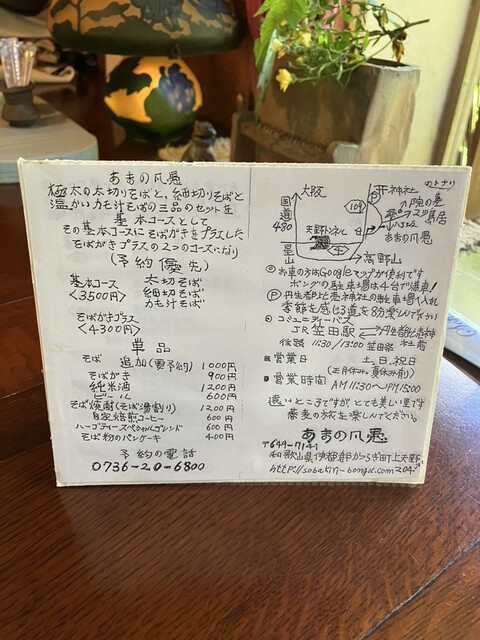 あまの爪愚
極太の太切りそばと、細切りそばと
温かいカモ汁そばの三品のセットを
基本コースとして
その基本コースにそばがきをプラスした
そばがきプラスの2つのコースになり
(予約優先)
基本コース 太切そば
<3500円> 細切そば
カモ汁そば
そばがきプラス
<4300円>
単品
そば 追加(要予約) 1000円
そばがき 900円
純米酒 1200円
ビール 600円
そば焼酎(そば湯割り) 1200円
自家焙煎コーヒー 600円
ハーブティースペシャルブレンド 600円
そば粉のパンケーキ 400円
予約の電話
0736-20-6800
大阪
神社
のトナリ
国道480
109
P
天野トンネル
4
里山
高野山
あまの爪愚
お車の方はGoogleマップが便利です
P 丹生都比売神社の駐車場へ入れ
季節を感じる道を8分楽しんで下さい
コミュニティーバス
JR笠田駅 丹生都比売神社前
往路 11:30/13:00 笠田発
営業日 土、日、祝日
(正月休み、夏休み有り)
営業時間 AM11:30〜PM15:00
遠いところですが、とても美しい里です
蕎麦の旅を楽しんで下さい。
あまの爪愚
〒649-7141
和歌山県伊都郡かつらぎ町上天野
204